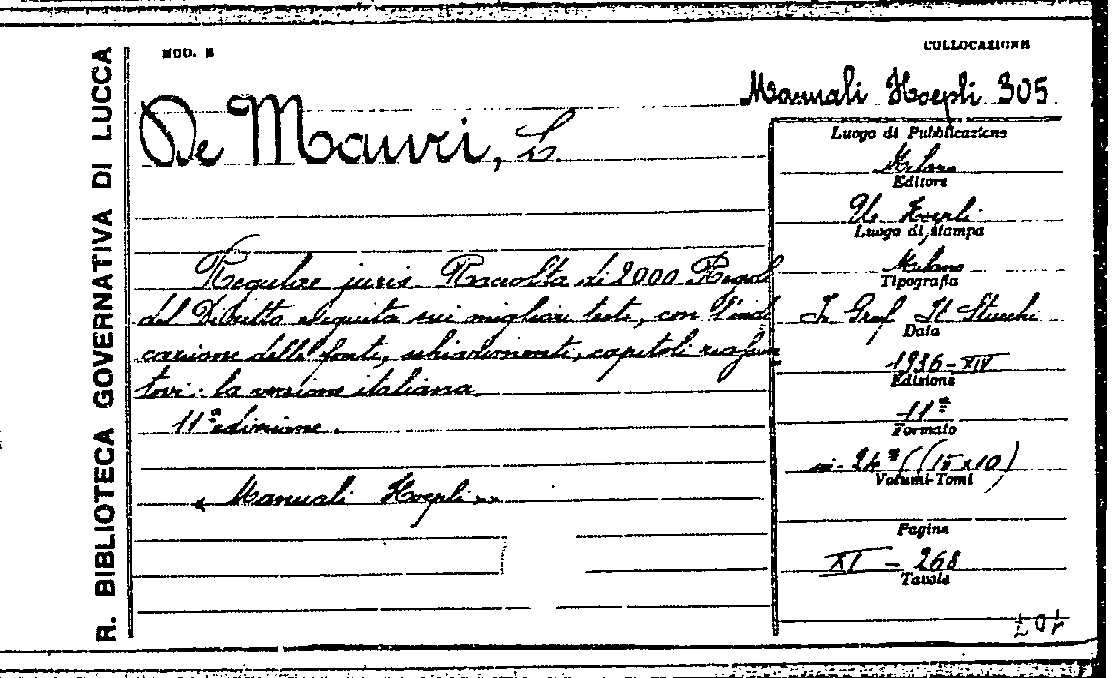 R. BIBLIOTECA GOVERNATIVA DI LUCCA
MOD. B
COLLOCAZIONE
Manuali Hoepli 305
De Mauri, L.
Regulae juris Raccolta di 2000 Regol
del Diritto eseguita sui migliori testi, con l'indi
cazione delle fonti, schiarimenti, capitoli riassun
tivi: la versione italiana.
11ª edizione.
« Manuali Hoepli »
Luogo di Pubblicazione
Milano
Editore
U. Hoepli
Luogo di stampa
Milano
Tipografia
Graf. St. Stucchi
Data
1936-XIV
Edizione
11ª
Formato
in-24º (15x10)
Volumi-Tomi
Pagine
XI - 268
Tavole